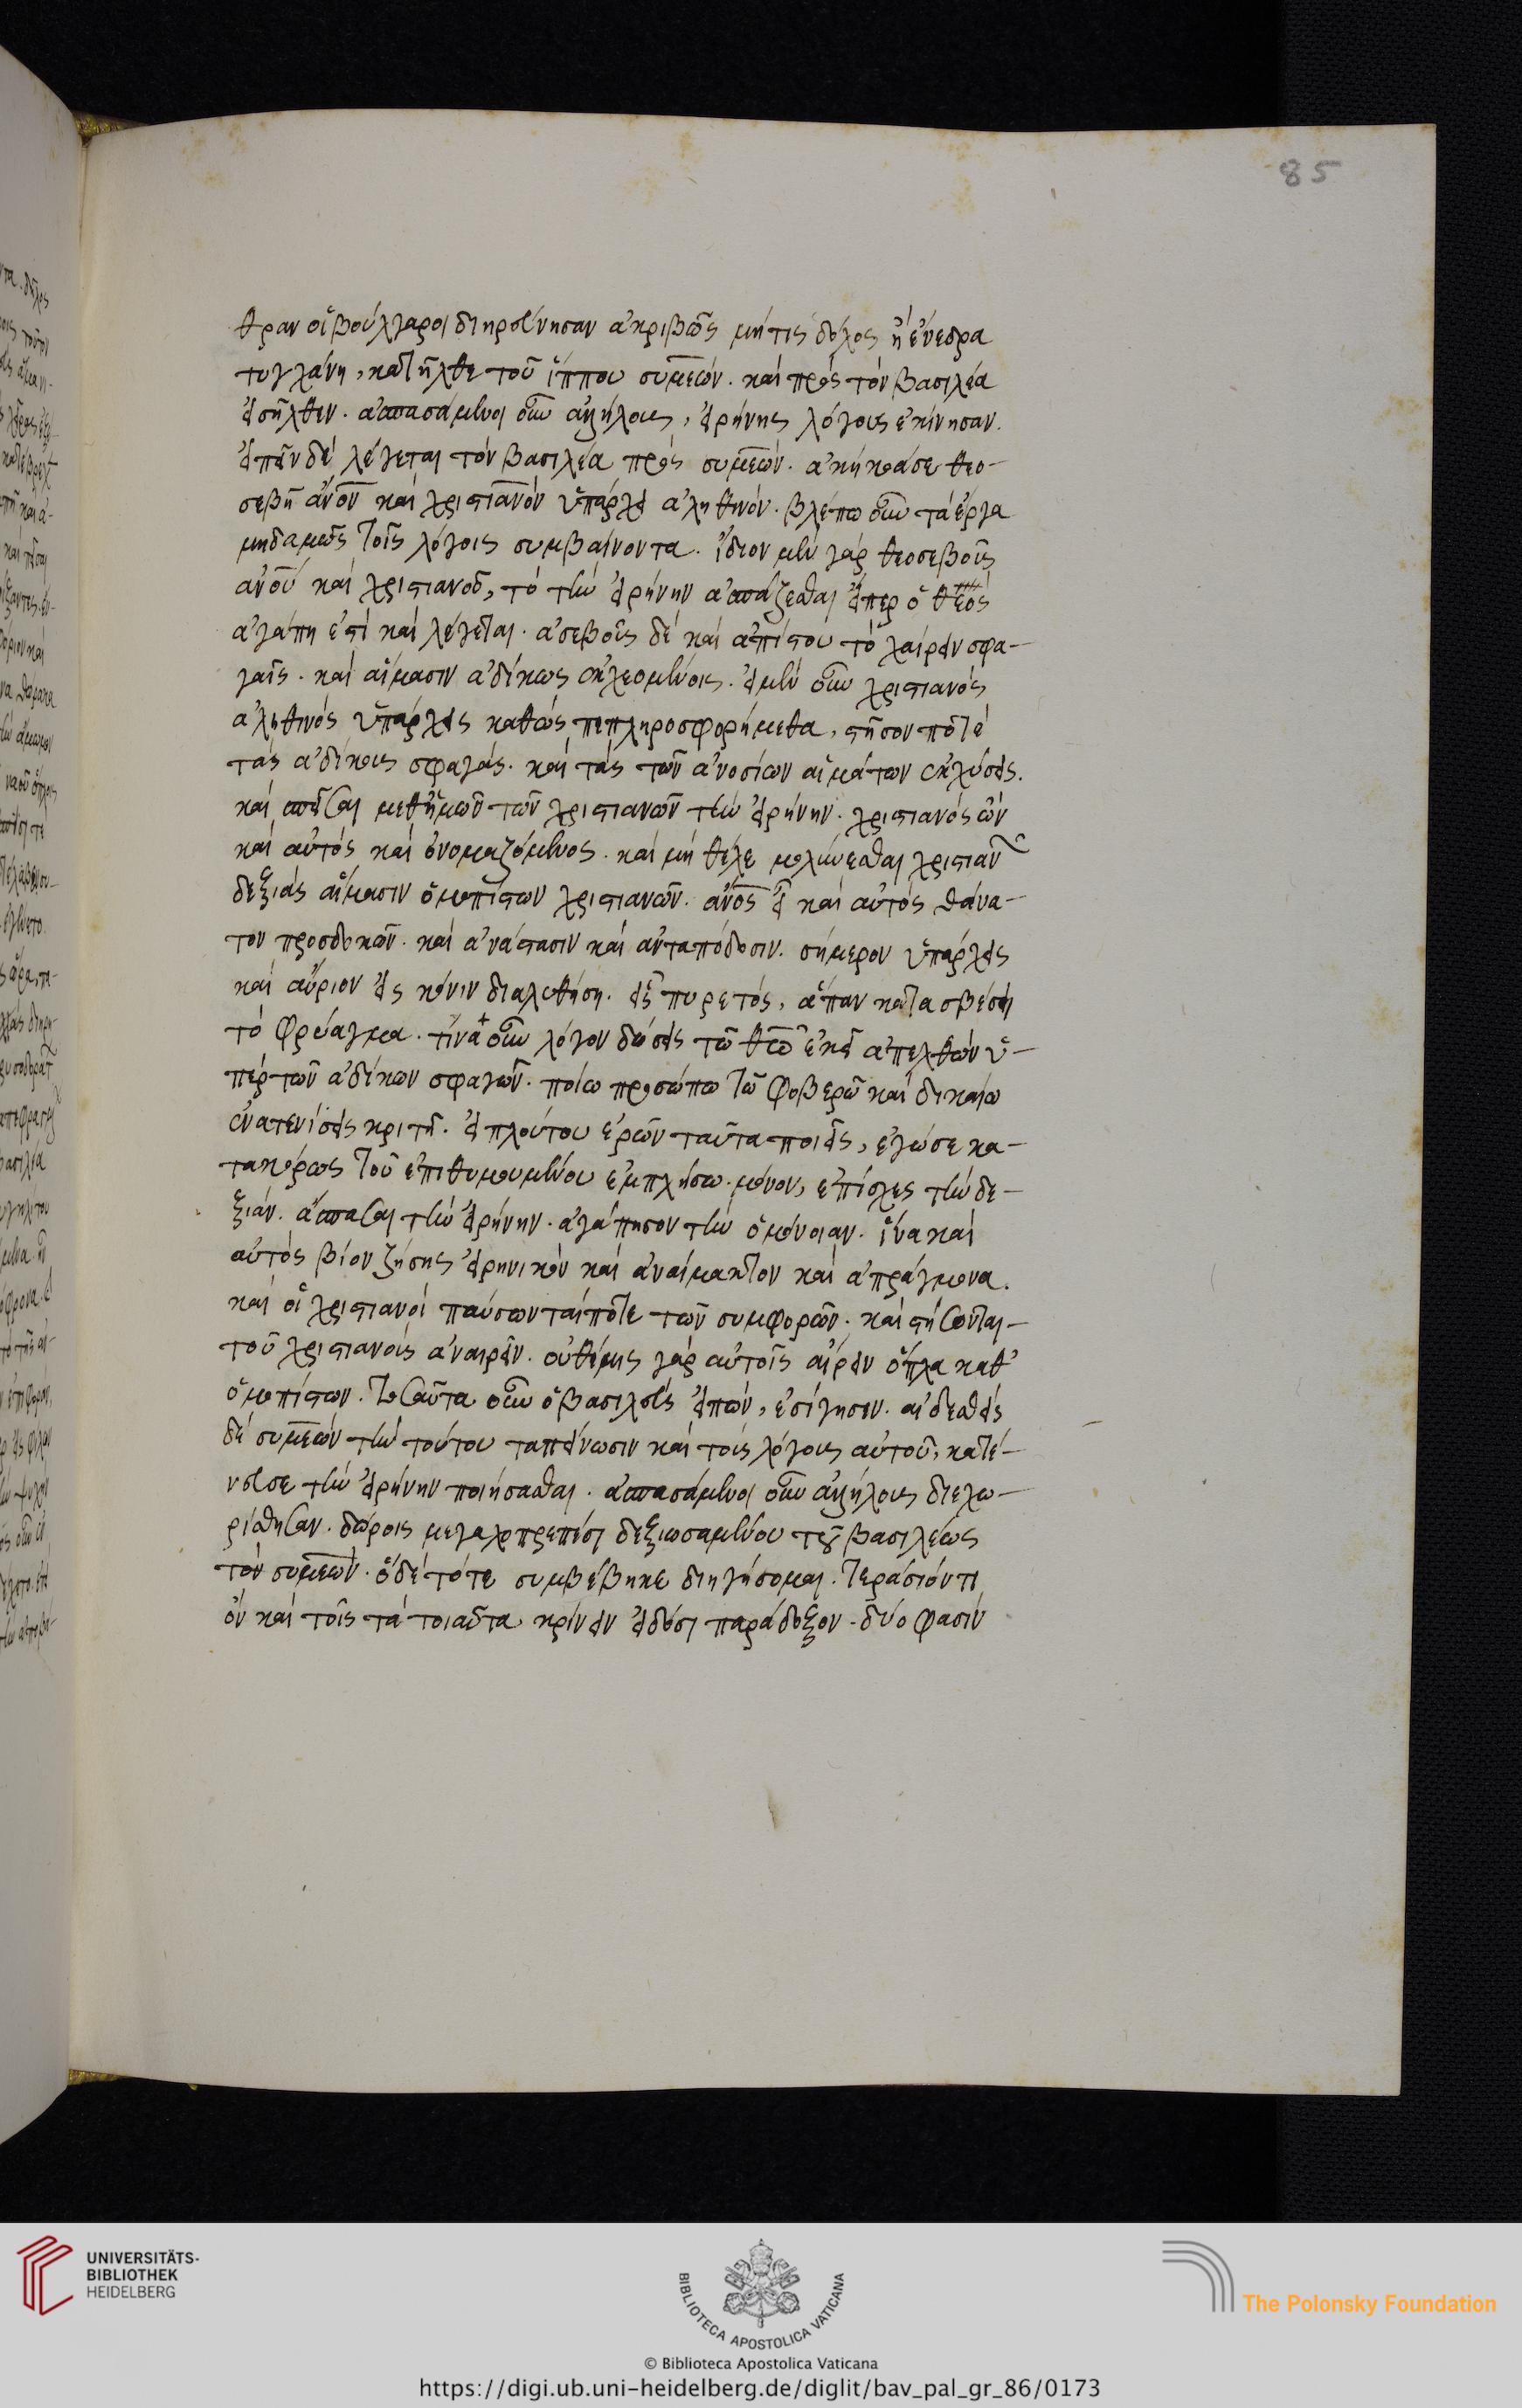 85
θραν οἱ βούλγαροι διηρεύνησαν ἀκριβῶς μήτις δόλος ἢ ἐνέδρα
τυγχάνη, κατῆλθε τοῦ ἵππου συμεών. καὶ πρὸς τὸν βασιλέα
εἰσῆλθεν. ἀσπασάμενοι οὖν ἀλλήλους, εἰρήνης λόγους ἐκίνησαν.
εἰπεῖν δὲ λέγεται τὸν βασιλέα πρὸς συμεών. ἀκήκοά σε θεο-
σεβῆ ἄνον καὶ χριστιανὸν ὑπάρχειν ἀληθινόν. βλέπω οὖν τὰ ἔργα
μηδαμῶς τοῖς λόγοις συμβαίνοντα. ἴδιον μὲν γὰρ θεοσεβοῦς
ἀνοῦ καὶ χριστιανοῦ, τὸ τὴν εἰρήνην ἀσπάζεσθαι εἴπερ ὁ θεός
ἀγάπη ἐστὶ καὶ λέγεται. ἀσεβοῦς δὲ καὶ ἀπίστου τὸ χαίρειν σφα-
γαῖς. καὶ αἵμασιν ἀδίκως ἐκχεομένοις. εἰ μὲν οὖν χριστιανός
ἀληθινὸς ὑπάρχεις καθὼς πεπληροφορήμεθα, στῆσον ποτὲ
τὰς ἀδίκους σφαγάς. καὶ τὰς τῶν ἀνοσίων αἱμάτων ἐκχύσεις.
καὶ σπεῖσαι μεθ' ἡμῶν τῶν χριστιανῶν τὴν εἰρήνην. χριστιανὸς ὢν
καὶ αὐτὸς καὶ ὀνομαζόμενος. καὶ μὴ θέλε μολύνεσθαι χριστιαν
δεξιὰς αἵμασιν ὁμοπίστων χριστιανῶν. ἄνος εἶ καὶ αὐτὸς θάνα-
τον προσδοκῶν. καὶ ἀνάστασιν καὶ ἀνταπόδοσιν. σήμερον ὑπάρχεις
καὶ αὔριον εἰς κόνιν διαλυθήση. εἷς πυρετός, ἅπαν κατασβέσει
τὸ φρύαγμα. τίνα οὖν λόγον δώσεις τῶ θῶ ἐκεῖ ἀπελθὼν ὑ-
πὲρ τῶν ἀδίκων σφαγῶν. ποίω προσώπω τῶ φοβερῶ καὶ δικαίω
ἐνατενίσεις κριτῆ. εἰ πλούτου ἐρῶν ταῦτα ποιεῖς, ἐγώ σε κα-
τακόρως τοῦ ἐπιθυμουμένου ἐμπλήσω. μόνον, ἐπίσχες τὴν δε-
ξιάν. ἄσπασαι τὴν εἰρήνην. ἀγάπησον τὴν ὁμόνοιαν. ἵνα καὶ
αὐτὸς βίον ζήσης εἰρηνικὸν καὶ ἀναίμακτον καὶ ἀπράγμονα.
καὶ οἱ χριστιανοὶ παύσωνταί ποτε τῶν συμφορῶν. καὶ στήσονται
τοῦ χριστιανοὺς ἀναιρεῖν. οὐ θέμις γὰρ αὐτοῖς αἴρειν ὅπλα καθ'
ὁμοπίστων. τοσαῦτα οὖν ὁ βασιλεὺς εἰπών, ἐσίγησεν. αἰδεσθεὶς
δὲ συμεὼν τὴν τούτου ταπείνωσιν καὶ τοὺς λόγους αὐτοῦ, κατέ-
νευσε τὴν εἰρήνην ποιήσασθαι. ἀσπασάμενοι οὖν ἀλλήλους διεχω-
ρίσθησαν. δώροις μεγαλοπρεπέσι δεξιωσαμένου τοῦ βασιλέως
τὸν συμεών. ὃ δὲ τότε συμβέβηκε διηγήσομαι. τεράστιόν τι
ὂν καὶ τοῖς τὰ τοιαῦτα κρίνειν εἰδόσι παράδοξον. δύο φασὶν
UNIVERSITÄTS-
BIBLIOTHEK
HEIDELBERG
BIBLIOTECA APOSTOLICA VATICANA
The Polonsky Foundation
© Biblioteca Apostolica Vaticana
https://digi.ub.uni-heidelberg.de/diglit/bav_pal_gr_86/0173